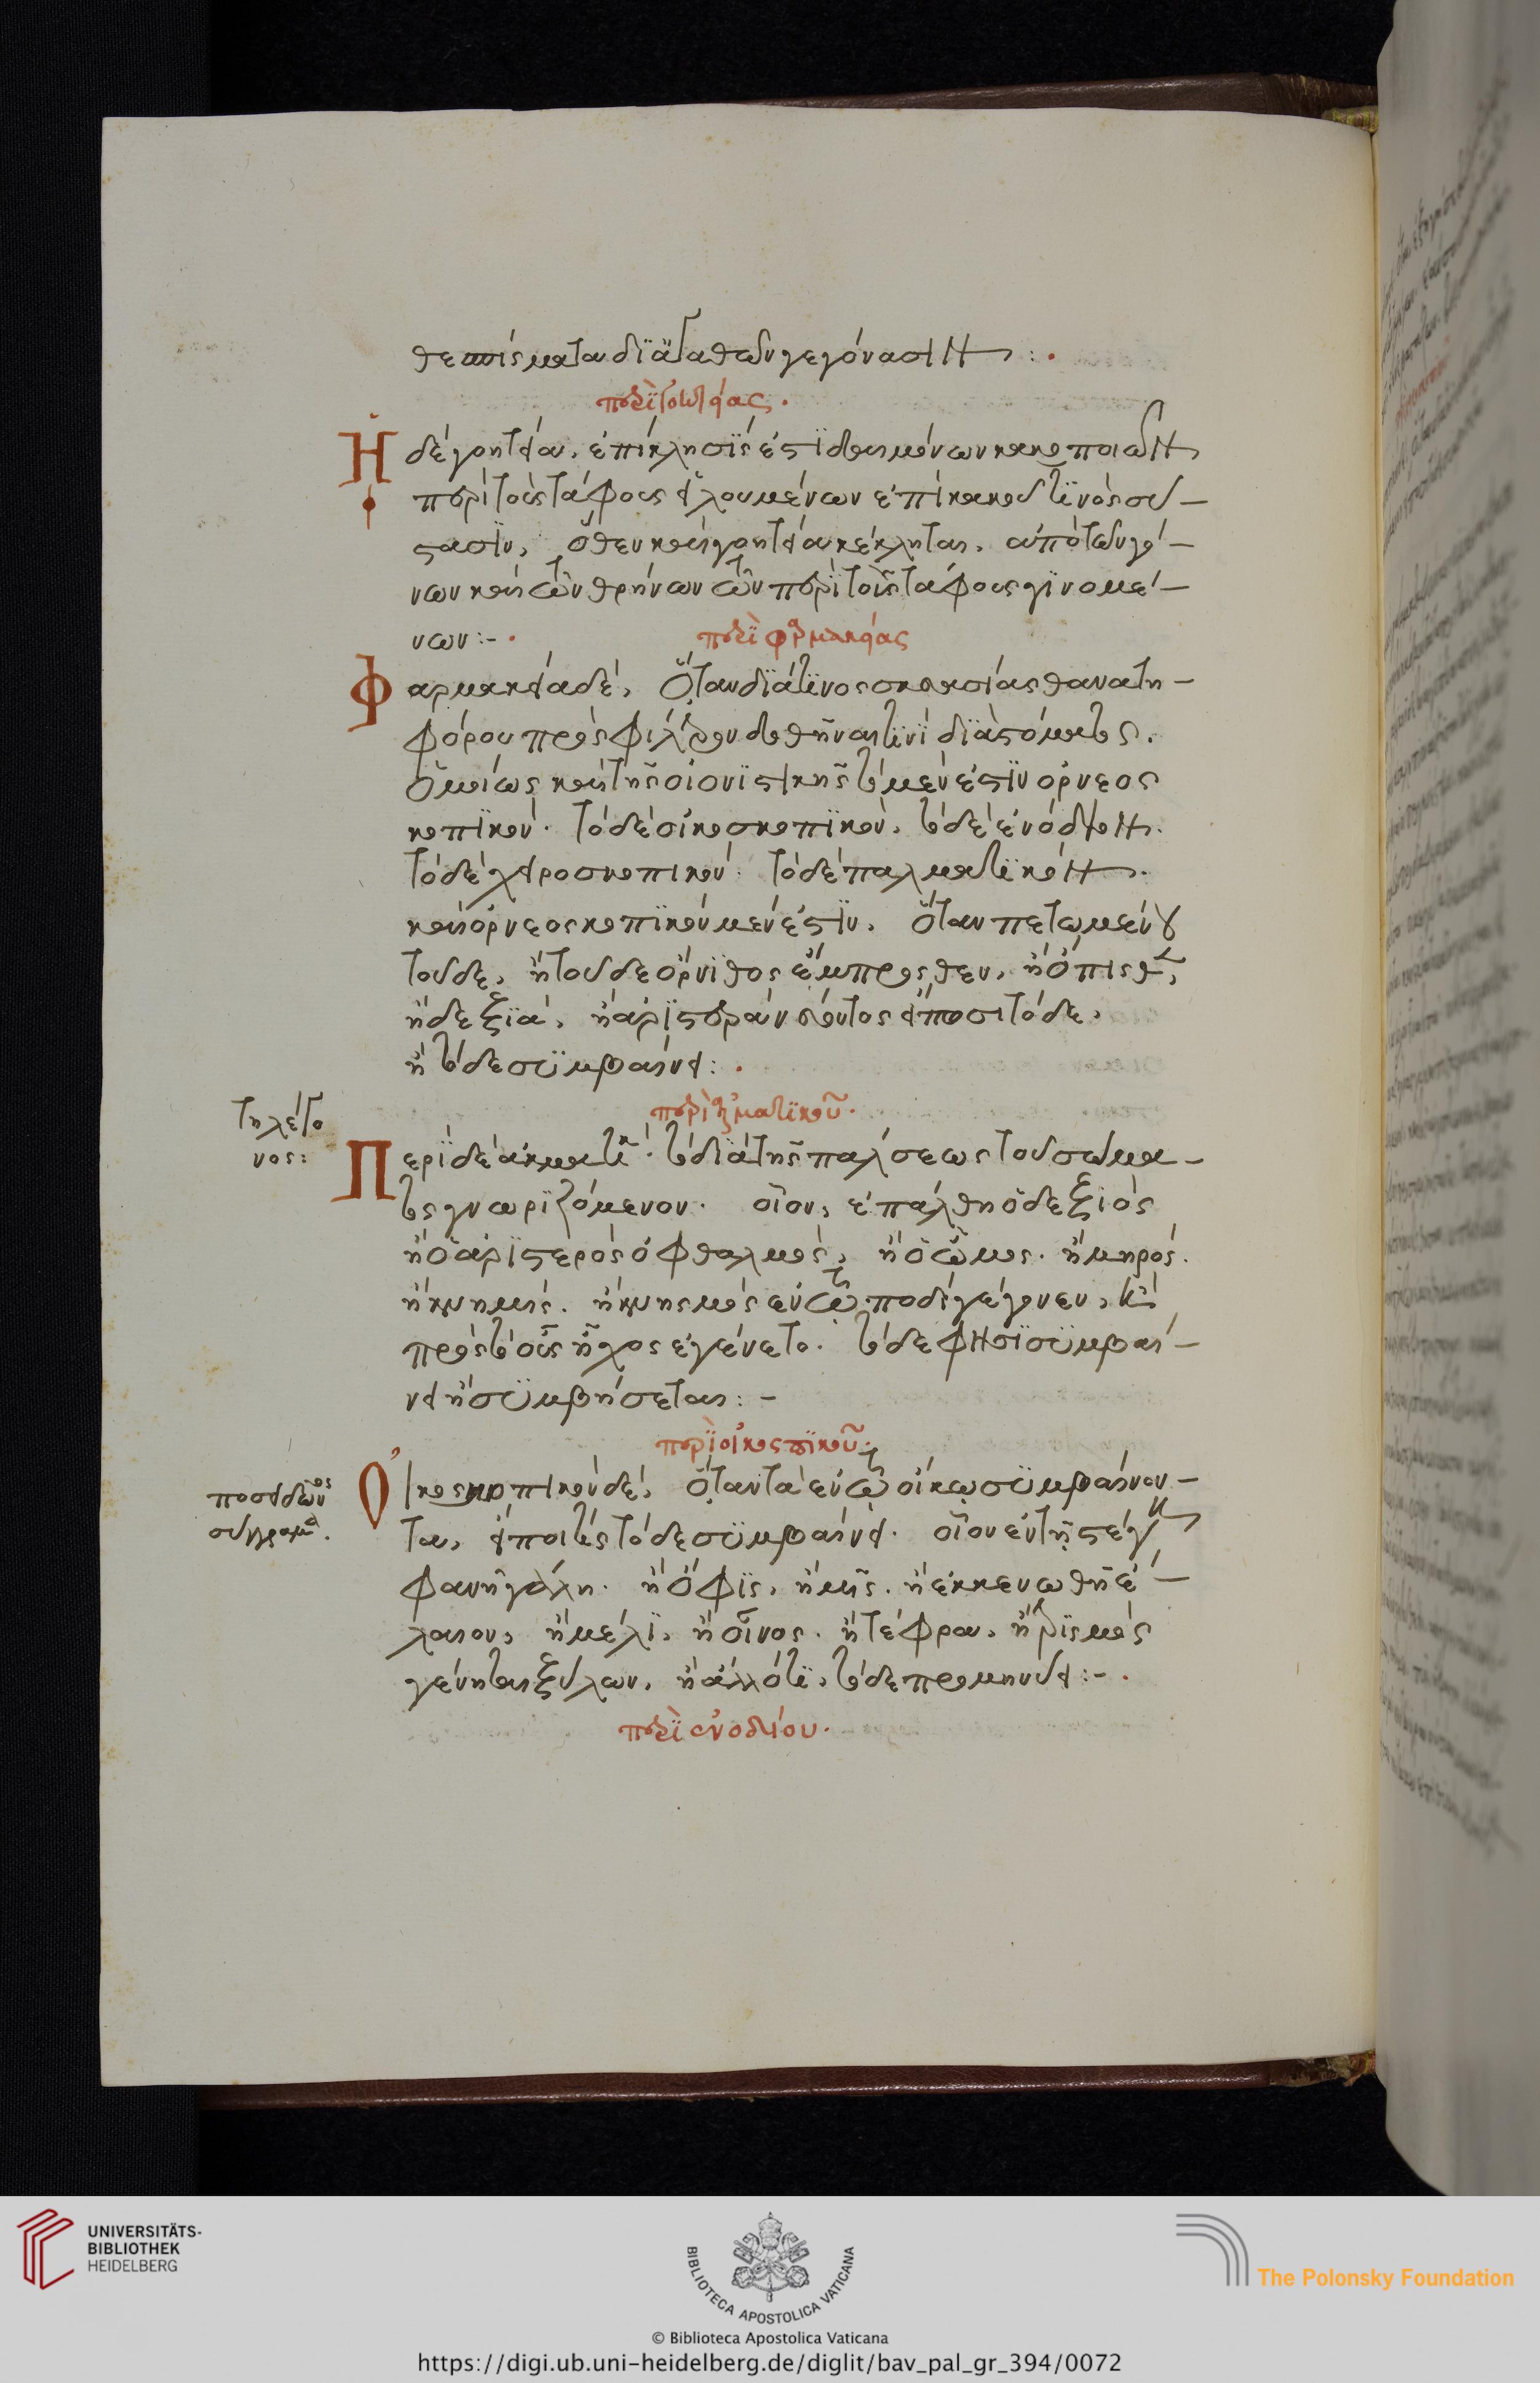 θεσπίσματα διὰ τἀγαθῶν γεγόνασιν :·
περὶ γοητείας·
Ἡ δὲ γοητεία, ἐπίκλησίς ἐστι δαιμόνων κακοποιῶν
περὶ τοὺς τάφους εἰλουμένων ἐπὶ κακοῦ τινὸς σύ-
στασιν, ὅθεν καὶ γοητεία κέκληται, ἀπὸ τῶν γό-
νων καὶ τῶν θρήνων τῶν περὶ τοὺς τάφους γινομέ-
νων :- ·
περὶ φαρμακείας
Φαρμακεία δέ, ὅταν διά τινος σκευασίας θανατη-
φόρου πρὸς φίλτρον δοθῆναι τινὶ διὰ στόματος.
ὁμοίως καὶ τῆς οἰονιστικῆς τὸ μέν ἐστιν ὀρνεος
κοπικόν· τὸ δὲ οἰκοσκοπικόν, τὸ δὲ ἐνόδιον.
τὸ δὲ χειροσκοπικόν· τὸ δὲ παλματικόν.
καὶ ὀρνεοσκοπικὸν μέν ἐστιν, ὅταν πετωμένου
τοῦδε, ἢ τοῦδε ὄρνιθος ἔμπροσθεν, ἢ ὄπισθεν,
ἢ δεξιά, ἢ ἀριστερά
εἴποσι τόδε,
ἢ τόδε συμβαίνει : ·
περὶ
ματικοῦ·
τηλέγο
νος:
Περὶ δὲ ἀκματικ· τὸ διὰ τῆς πάλσεως τοῦ σώμα-
τος γνωριζόμενον· οἷον, ἐπάλθη ὁ δεξιὸς
ἢ ὁ ἀριστερὸς ὀφθαλμός, ἢ ὁ ὦμος· ἢ μηρός.
ἢ κνημίς. ἢ κνησμὸς ἐν τῷ ποδὶ γέγονεν, καὶ
πρὸς τὸ οὖς ἦχος ἐγένετο· τόδε φησὶ συμβαί-
νει ἢ συμβήσεται :-
περὶ οἰκοσπικοῦ·
ποσειδῶνος
σύγγραμμα.
Οἰκοσκοπικὸν δέ, ὅταν τὰ ἐν τῷ οἴκῳ συμβαίνον-
τα, εἴποι τις τόδε συμβαίνει· οἷον ἐν τῇ στέγῃ
φανῇ γαλῆ· ἢ ὄφις, ἢ μῦς. ἢ ἐκκενωθῇ ἔ-
λαιον, ἢ μέλι, ἢ οἶνος. ἢ τέφρα, ἢ τρισμὸς
γένηται ξύλων, ἢ ἄλλό τι, τόδε προμηνύει :- ·
περὶ ἐνοδίου·
UNIVERSITÄTS-
BIBLIOTHEK
HEIDELBERG
BIBLIOTECA APOSTOLICA VATICANA
The Polonsky Foundation
© Biblioteca Apostolica Vaticana
https://digi.ub.uni-heidelberg.de/diglit/bav_pal_gr_394/0072